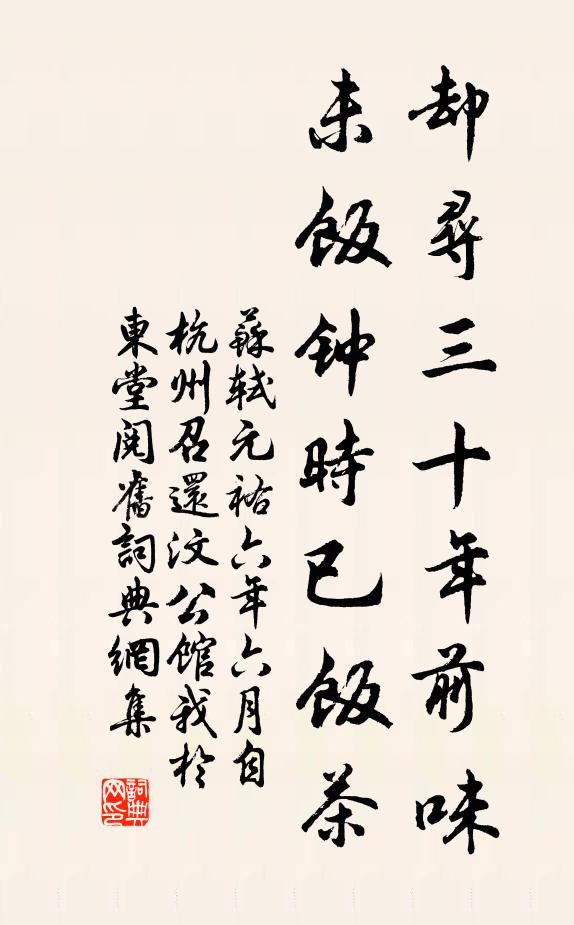 却尋三十年前味
未飯钟時已飯茶
蘇軾元祐六年六月自
杭州召還汶公館我於
東堂閱舊詞典網集
詞典网印